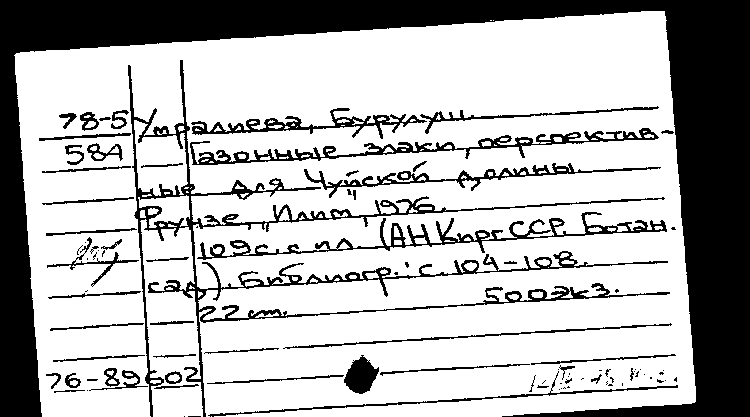 78-5 Утралиева, Бурулуш.
584 Газонные злаки, перспектив-
ные для Чуйской долины.
Фрунзе, "Илим", 1976.
109с. с ил. (АН Кирг.ССР. Ботан.
сад). Библиогр.: с. 104-108.
22 cm. 500экз.
76-89602